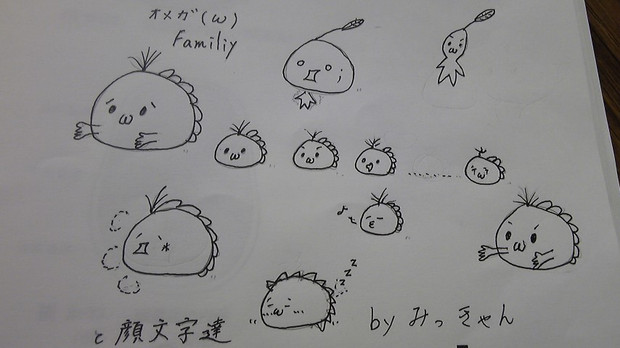 オメガ(ω)
Familiy
z z z z
と顔文字達
by みっきゃん